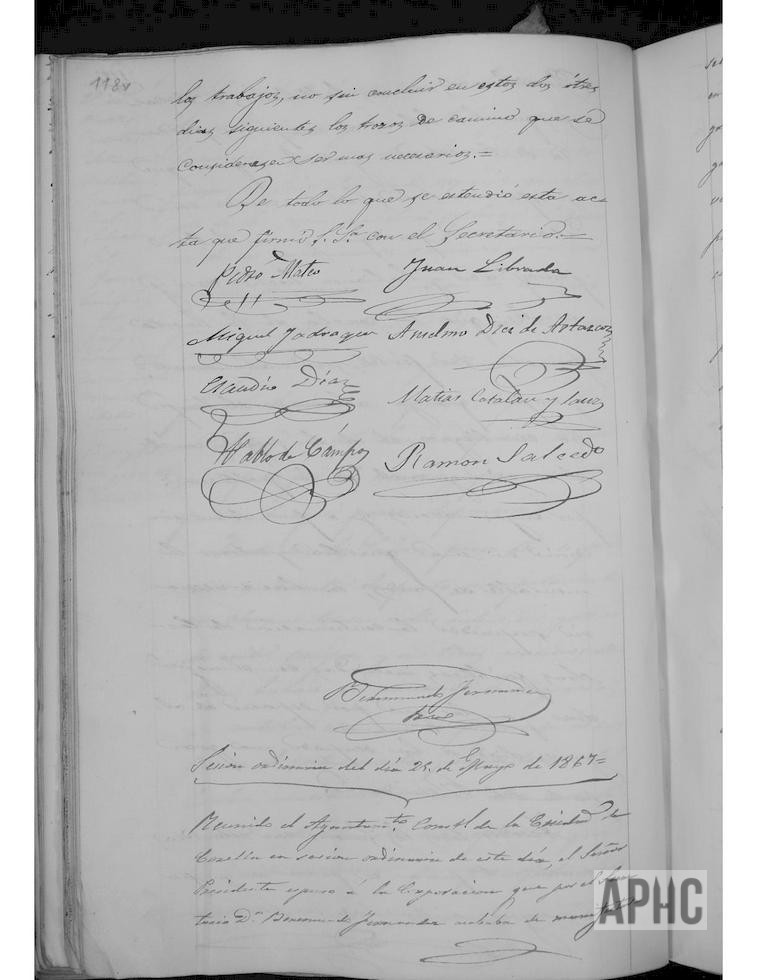 118v
los trabajos, no sin concluir en estos dos ó tres
dias siguientes los trozos de camino que se
considerasen ser mas necesarios.=
De todo lo que se estendió esta ac-
ta que firmó S. Sa. con el Secretario.=
Pedro Mateo Juan Librada
Miguel Jadraque Anselmo Diez de Artazcoz
Claudio Diaz Matias Catalan y Sanz
Pablo de Cámpos Ramon Salcedo
Fernandez
Sesion ordinaria del dia de Mayo de 1867=
Reunido el Ayuntamto. Constl. de la Ciudad de
en sesion ordinaria de este dia, el Señor
Presidente espuso á la Corporacion que por el
Dn. Fernandez acababa de
APHC